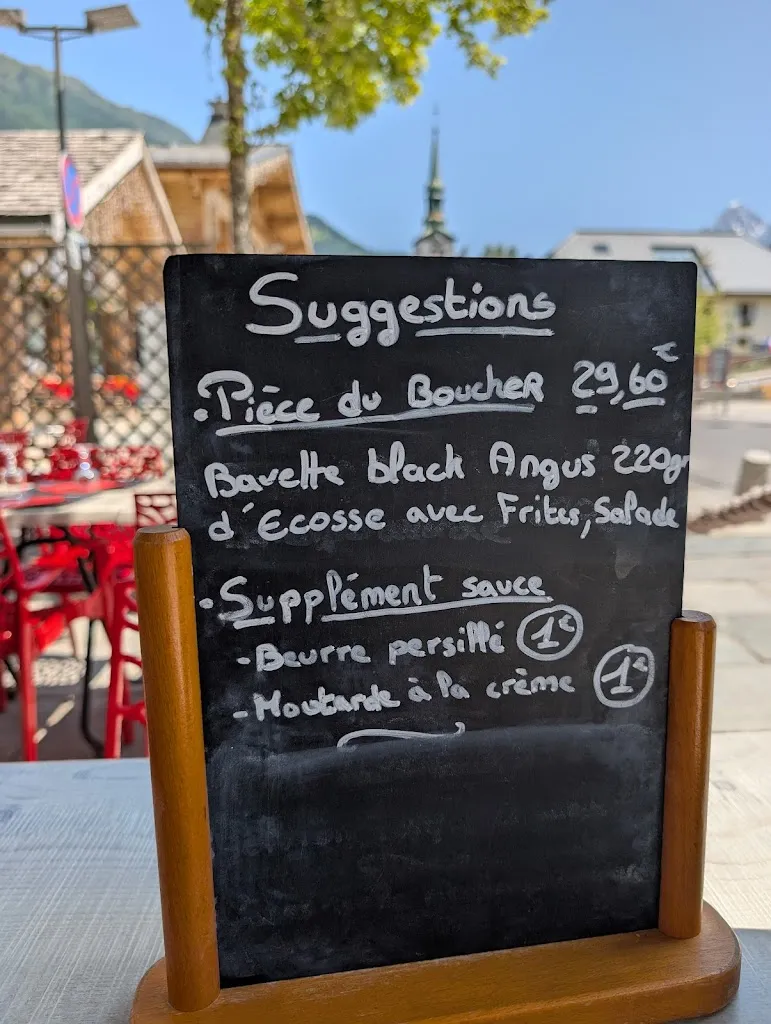 Suggestions
. Pièce du Boucher 29,60€
Bavette black Angus 220gr
d'Ecosse avec Frites, Salade
. Supplément sauce
- Beurre persillé 1€
- Moutarde à la crème 1€